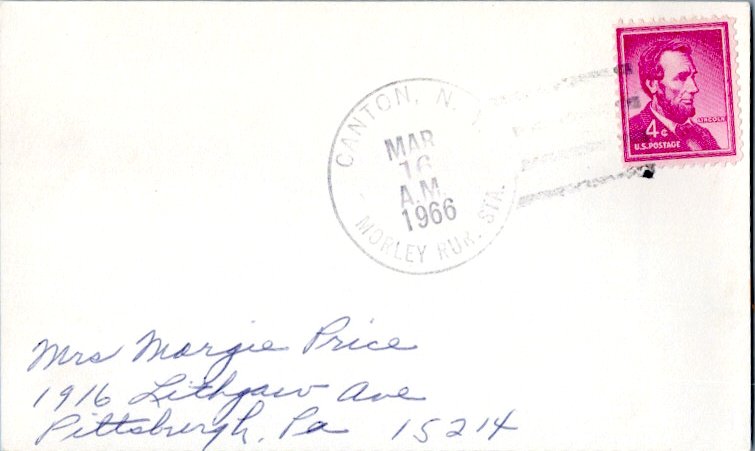 CANTON, N. Y.
MAR
16
A.M.
1966
MORLEY RUR. STA.
LINCOLN
4¢
U.S. POSTAGE
Mrs Margie Price
1916 Lithgaw Ave
Pittsburgh, Pa 15214